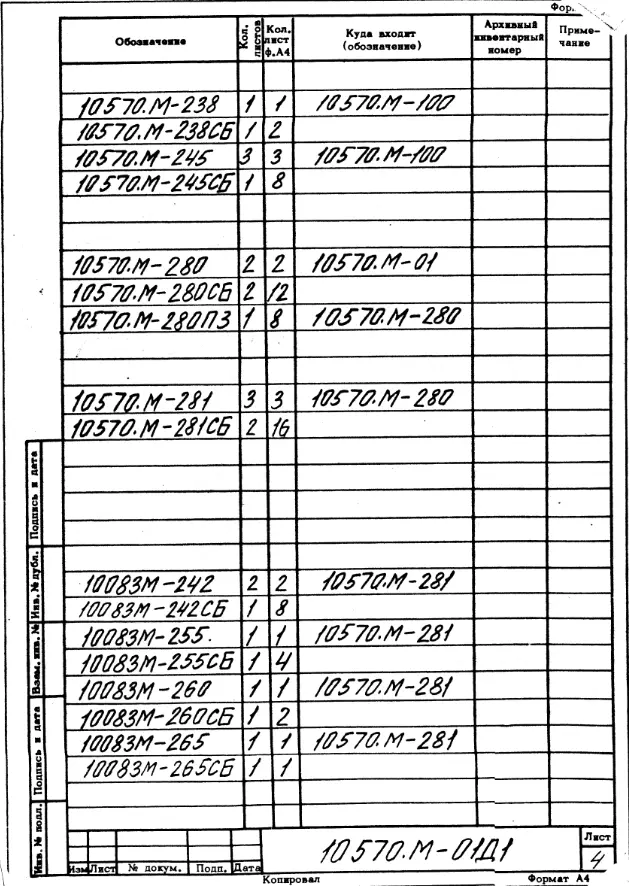 Фор
Обозначение Кол. листов Кол. лист ф.А4 Куда входит (обозначение) Архивный инвентарный номер Примечание
10570.М-238 1 1 10570.М-100
10570.М-238СБ 1 2
10570.М-245 3 3 10570.М-100
10570.М-245СБ 1 8
10570.М-280 2 2 10570.М-01
10570.М-280СБ 2 12
10570.М-280ПЗ 1 8 10570.М-280
10570.М-281 3 3 10570.М-280
10570.М-281СБ 2 16
10083М-242 2 2 10570.М-281
10083М-242СБ 1 8
10083М-255. 1 1 10570.М-281
10083М-255СБ 1 4
10083М-260 1 1 10570.М-281
10083М-260СБ 1 2
10083М-265 1 1 10570.М-281
10083М-265СБ 1 1
Подпись и дата
Инв. № дубл.
Взам. инв. №
Подпись и дата
Инв. № подл.
10570.М-01Д1
Лист
4
Изм Лист № докум. Подп. Дата
Копировал Формат А4